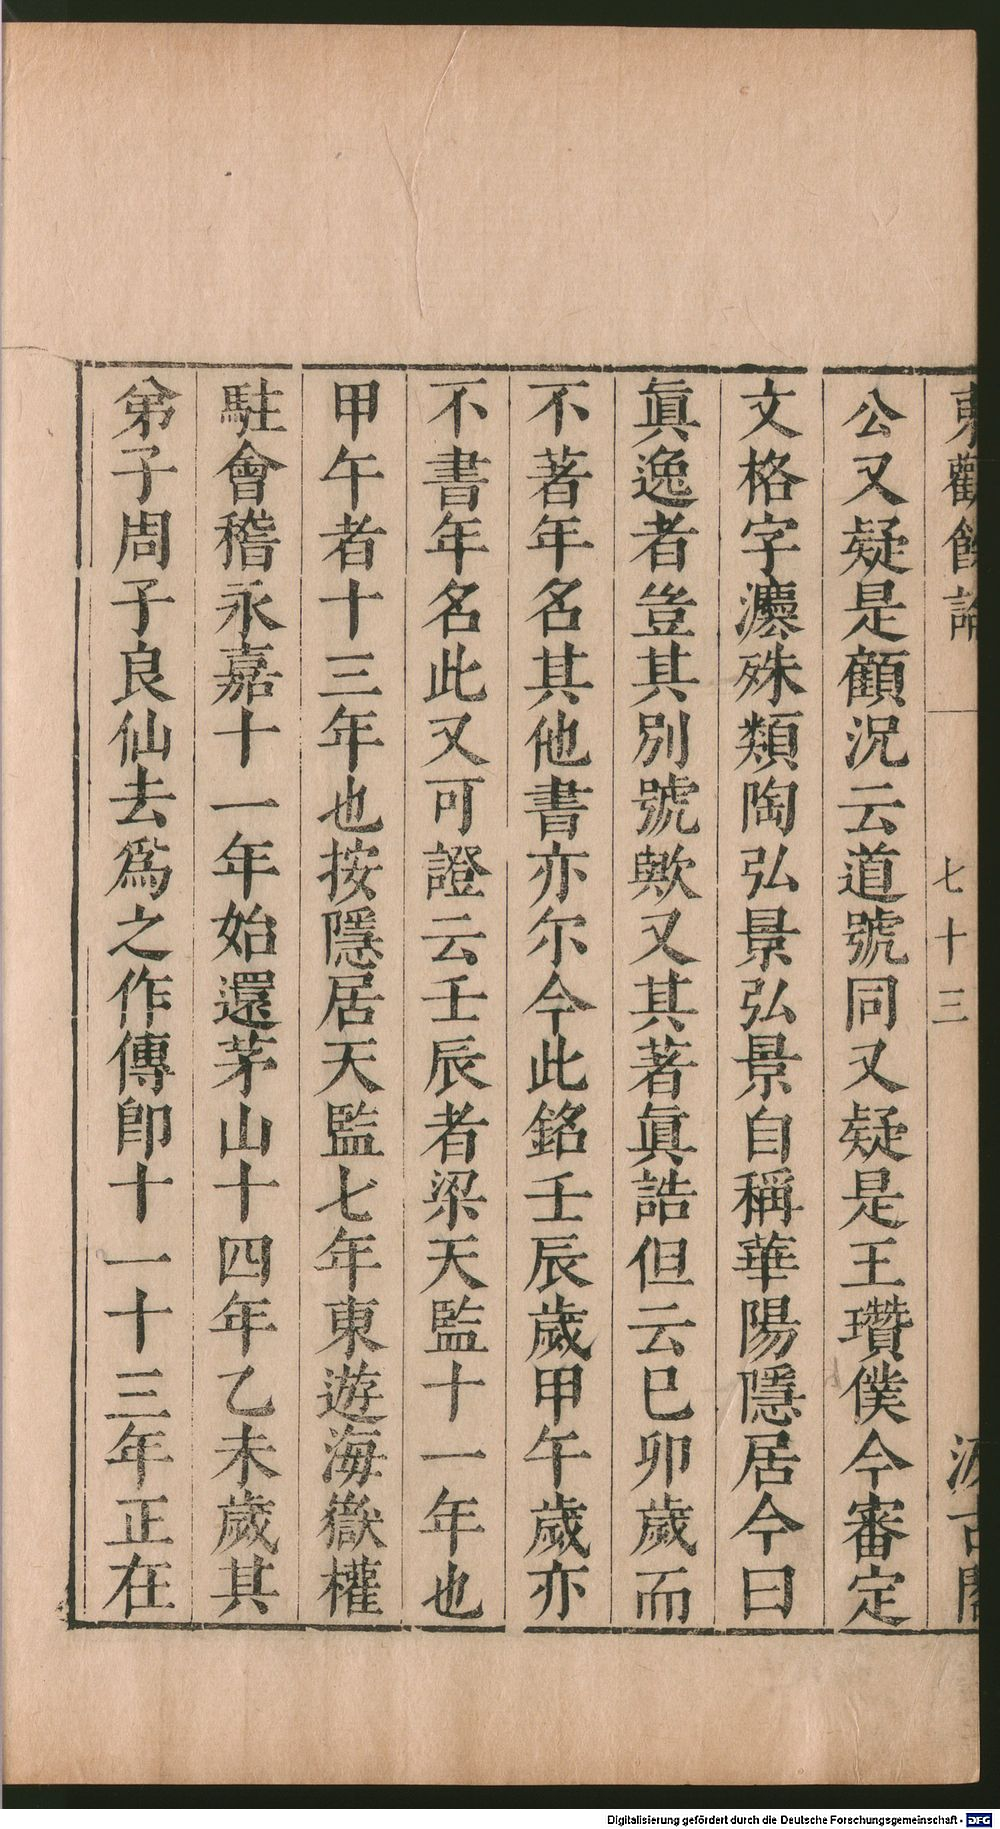 東觀餘論 七十三 汲古閣
公又疑是顧況云道號同又疑是王瓚僕今審定
文格字灋殊類陶弘景弘景自稱華陽隱居今曰
眞逸者豈其別號歟又其著眞誥但云巳卯歲而
不著年名其他書亦尔今此銘壬辰歲甲午歲亦
不書年名此又可證云壬辰者梁天監十一年也
甲午者十三年也按隱居天監七年東遊海嶽權
駐會稽永嘉十一年始還茅山十四年乙未歲其
弟子周子良仙去爲之作傳卽十一十三年正在
Digitalisierung gefördert durch die Deutsche Forschungsgemeinschaft - DFG